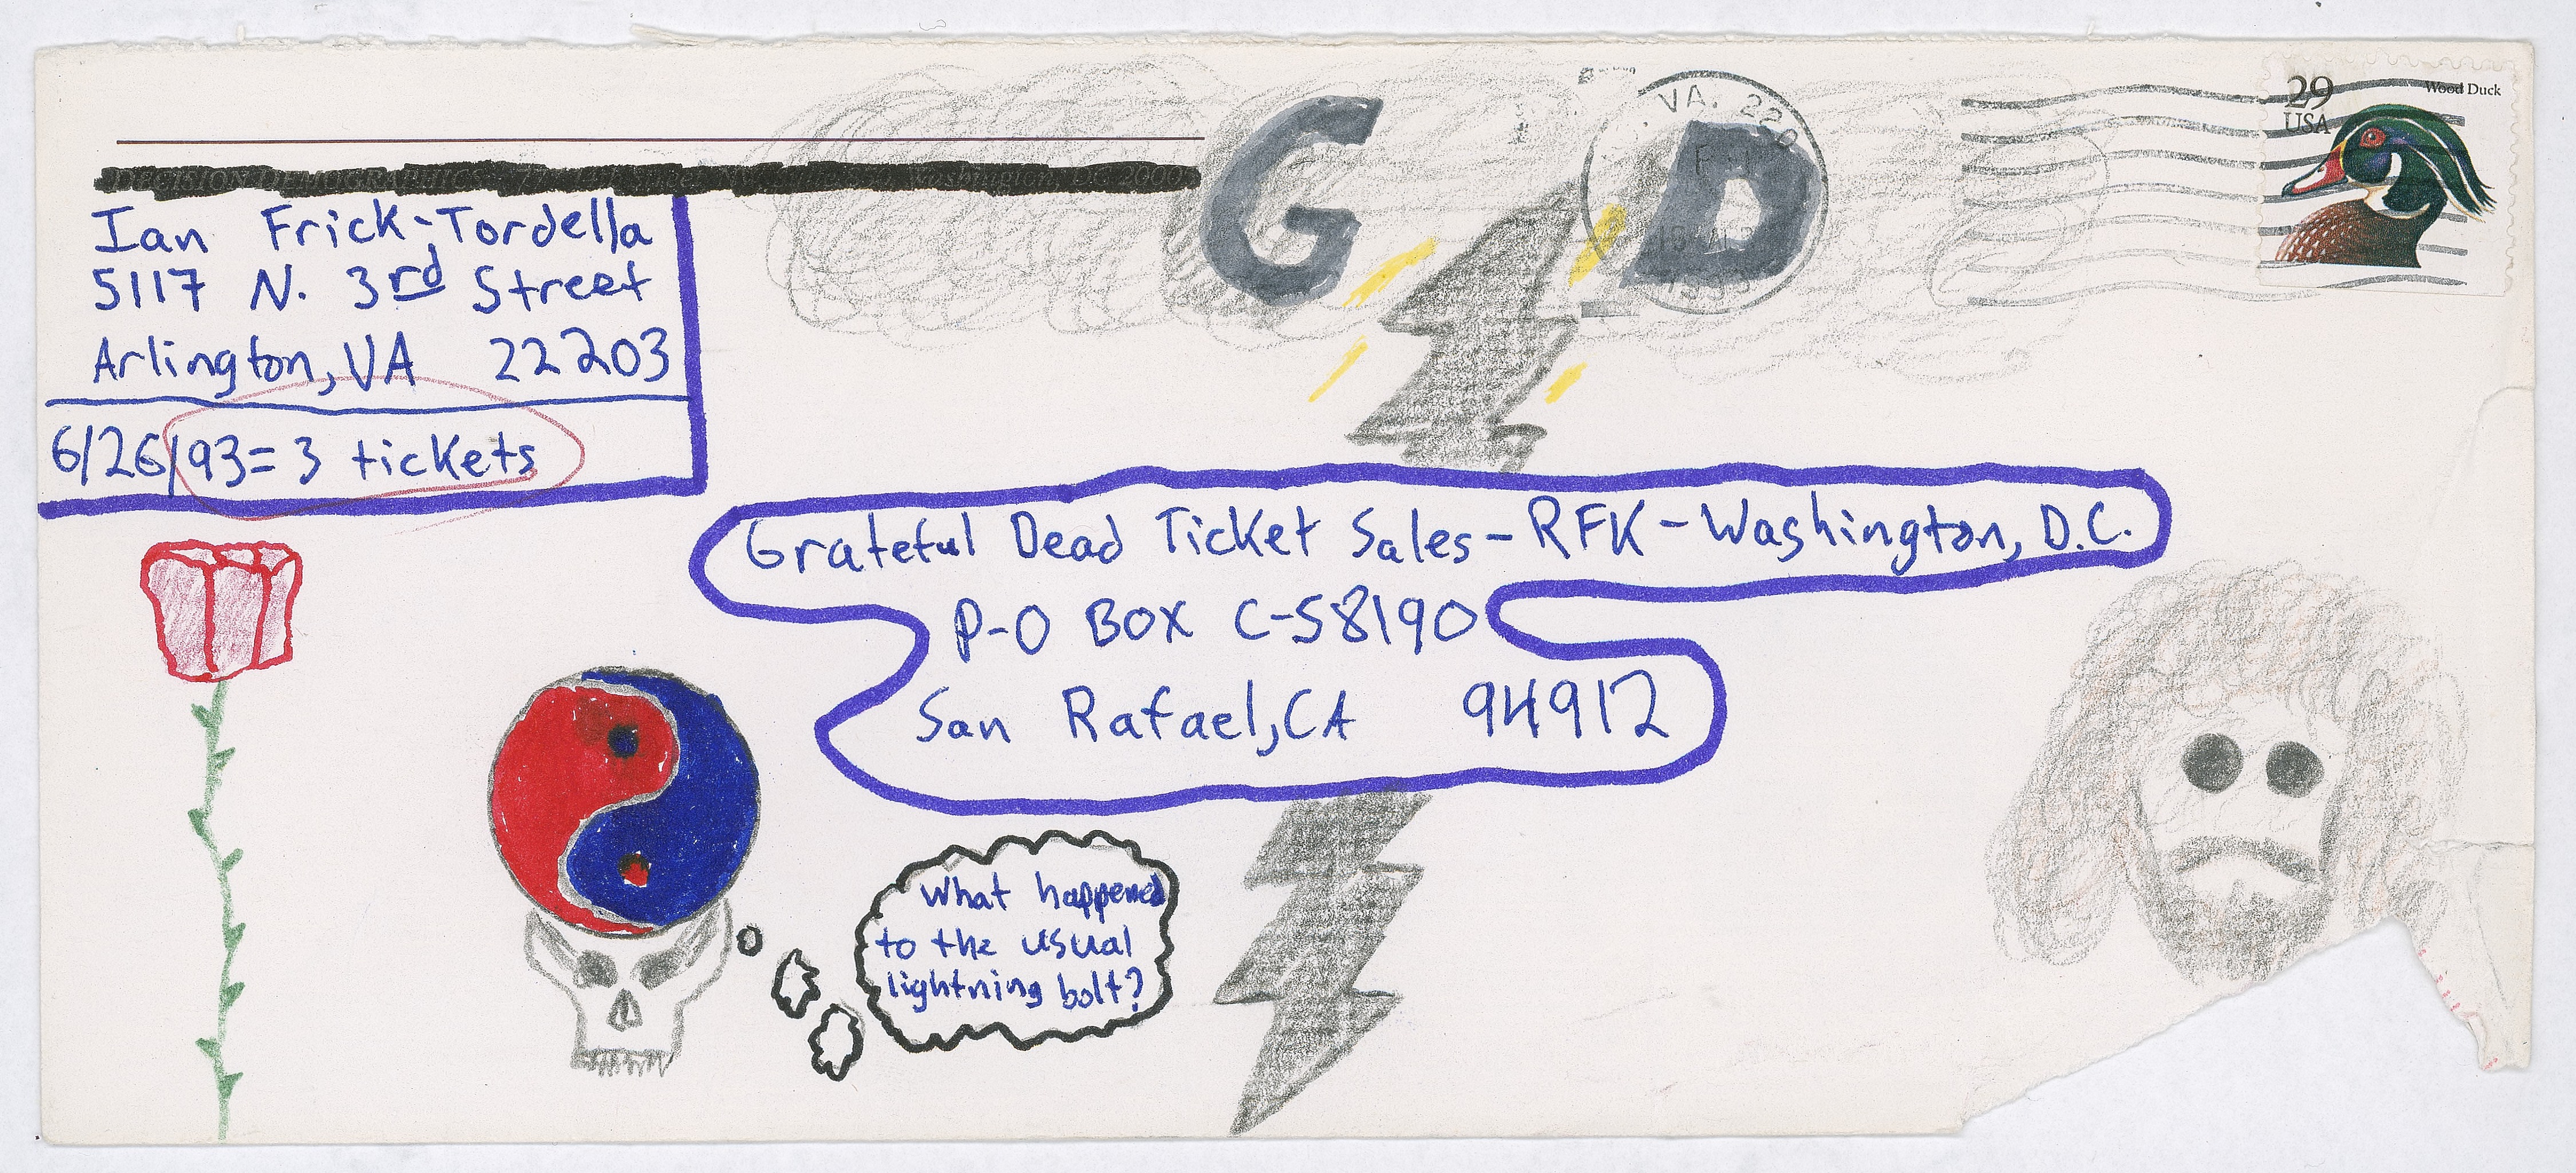 DECISION DEMOGRAPHICS Washington, DC
Ian Frick-Tordella
5117 N. 3rd Street
Arlington, VA 22203
6/26/93=3 tickets
G D
VA. 220
1993
29
USA
Wood Duck
Grateful Dead Ticket Sales-RFK-Washington, D.C.
P-O BOX C-58190
San Rafael, CA 94912
What happened
to the usual
lightning bolt?